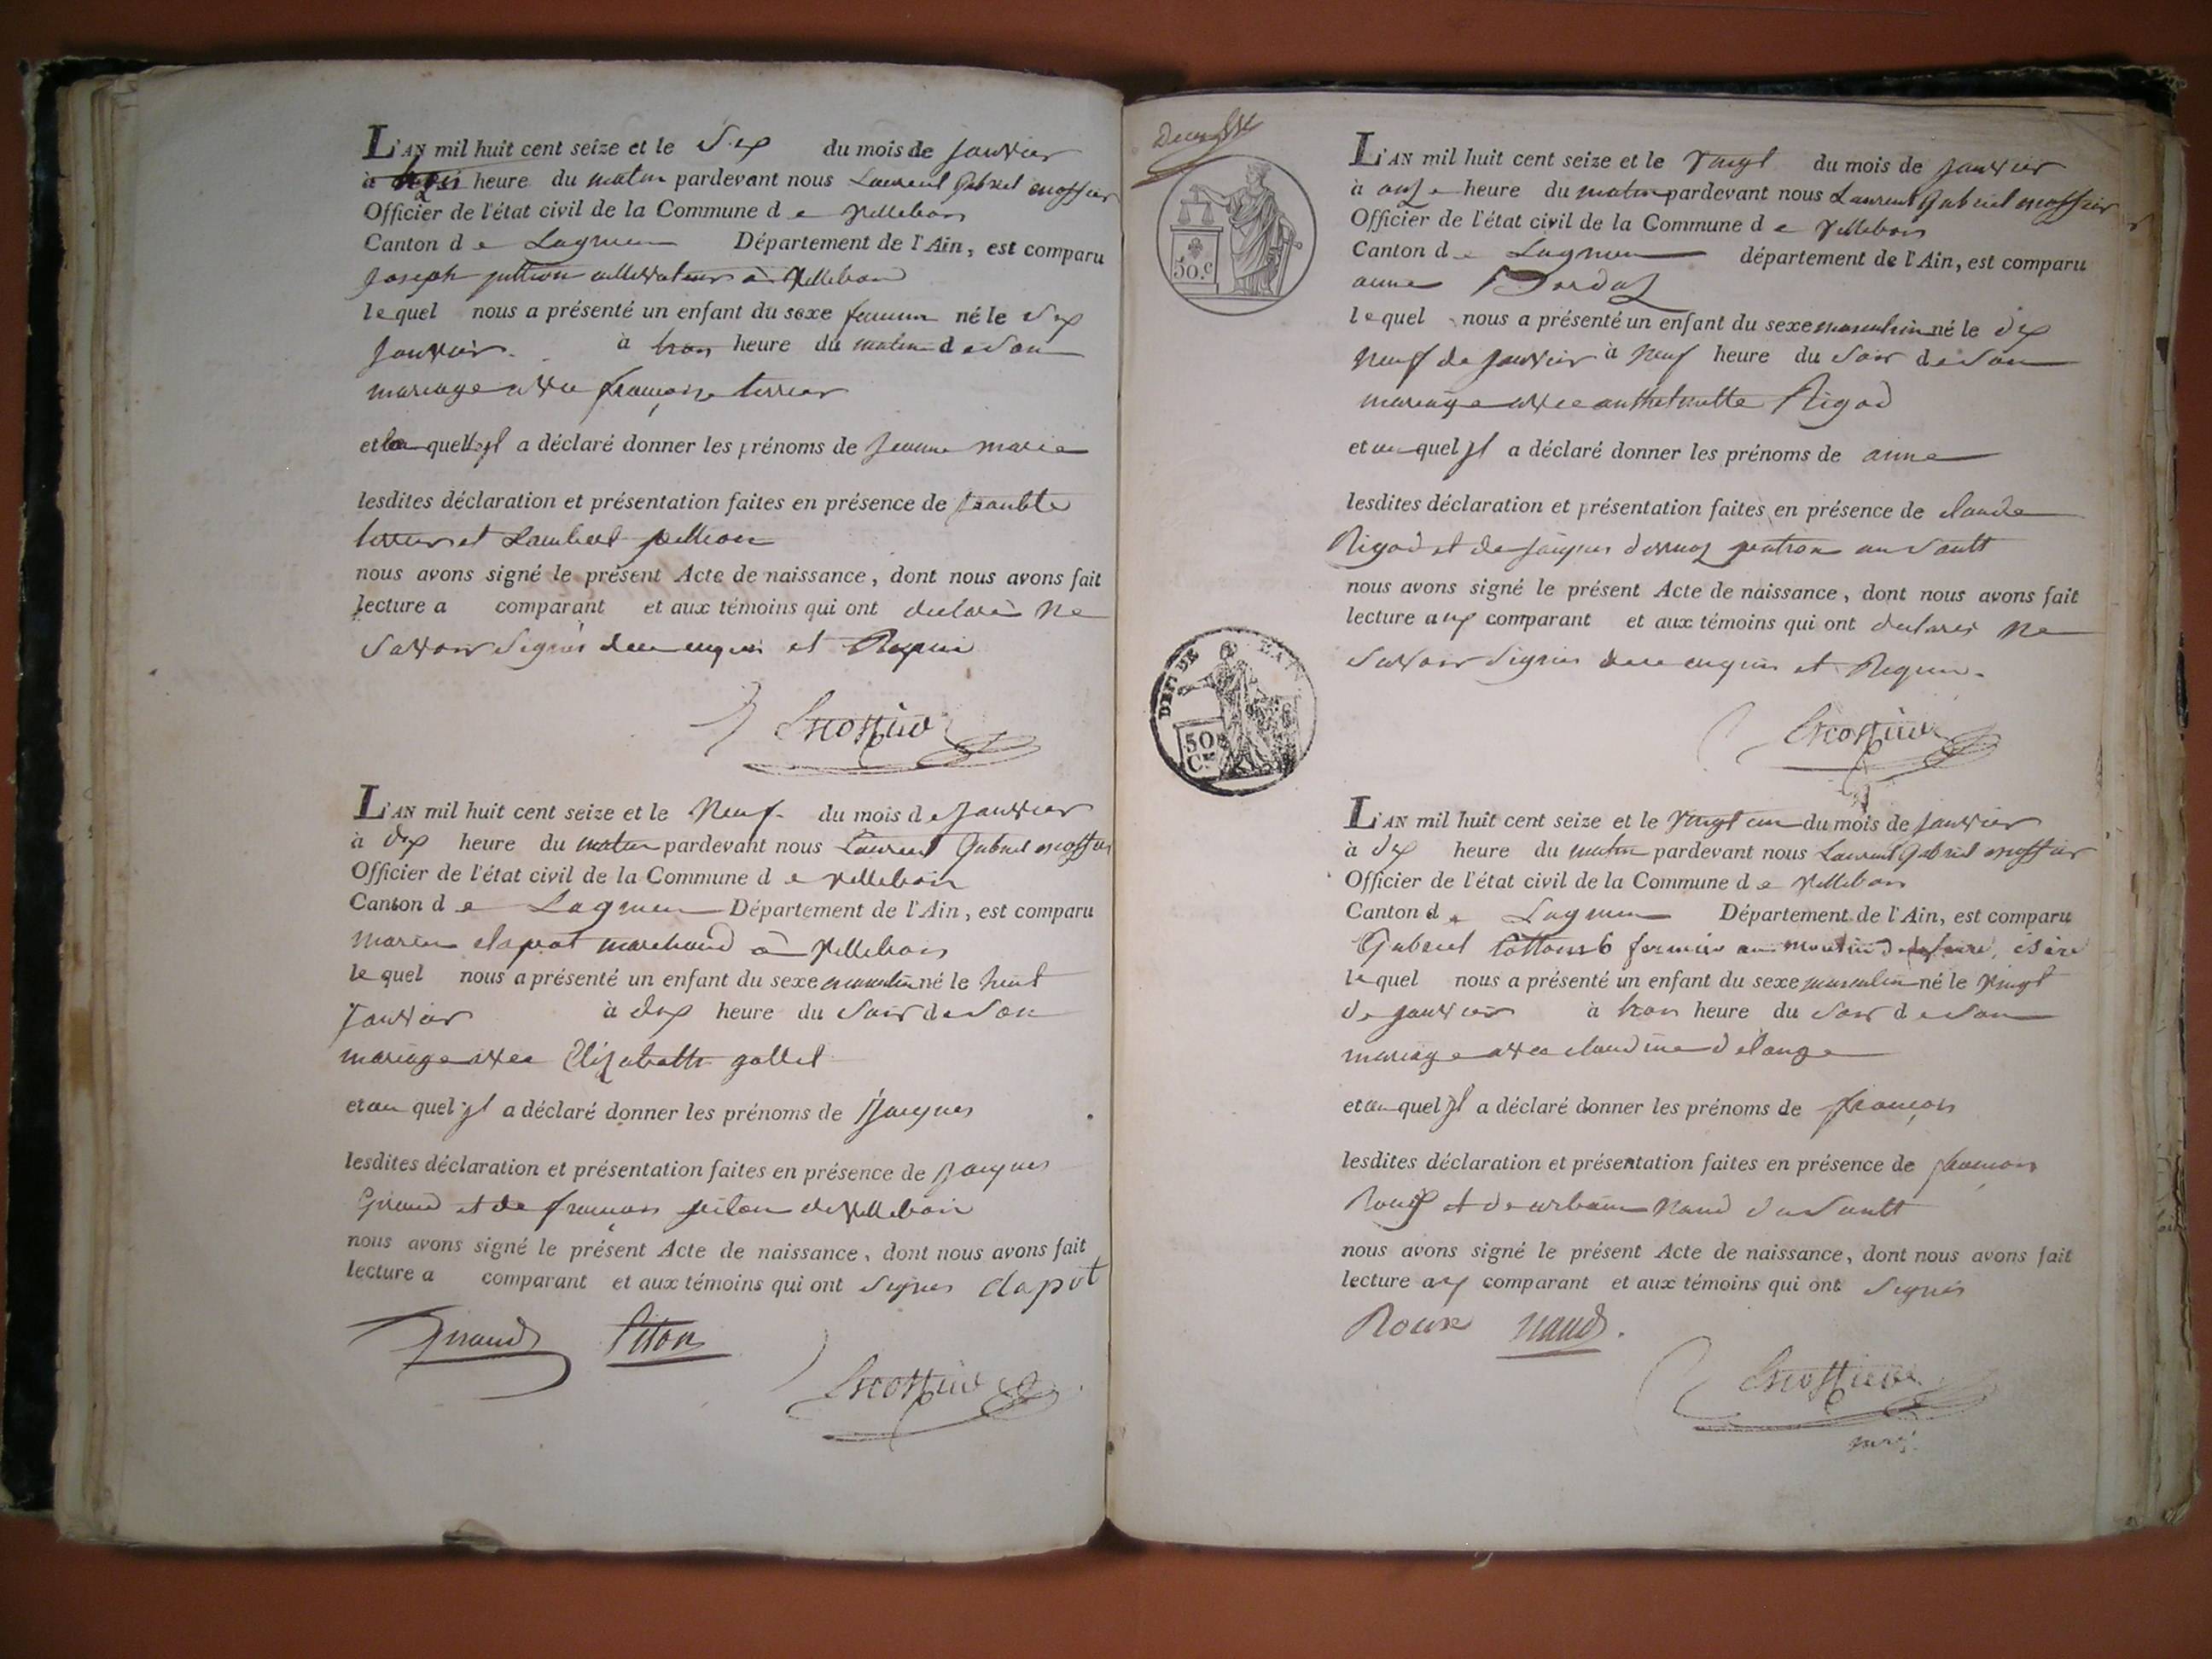 L'AN mil huit cent seize et le dix du mois de janvier
à heure du matin pardevant nous Laurent Gabriel
Officier de l'état civil de la Commune d e Villebois
Canton d e Lagnieu Département de l'Ain, est comparu
Joseph cultivateur à Villebois
le quel nous a présenté un enfant du sexe feminin né le dix
janvier à trois heure du matin d e son
mariage avec françoise terrier
et la quelle jl a déclaré donner les prénoms de jeanne marie
lesdites déclaration et présentation faites en présence de
terrier et Lambert
nous avons signé le présent Acte de naissance, dont nous avons fait
lecture a comparant et aux témoins qui ont declaré ne
savoir signer de ce enquis et Requis
L'AN mil huit cent seize et le Neuf du mois d e janvier
à dix heure du matin pardevant nous Laurent Gabriel
Officier de l'état civil de la Commune d e Villebois
Canton d e Lagnieu Département de l'Ain, est comparu
marchand à Villebois
le quel nous a présenté un enfant du sexe masculin né le huit
janvier à dix heure du soir de son
mariage avec Elizabeth gallet
et au quel jl a déclaré donner les prénoms de jacques
lesdites déclaration et présentation faites en présence de jacques
Giraud et de françois piton de Villebois
nous avons signé le présent Acte de naissance, dont nous avons fait
lecture a comparant et aux témoins qui ont signés clapot
Giraud Piton
50.c
L'AN mil huit cent seize et le Vingt du mois de janvier
à onze heure du matin pardevant nous Laurent Gabriel
Officier de l'état civil de la Commune d e Villebois
Canton d e Lagnieu département de l'Ain, est comparu
anne
le quel nous a présenté un enfant du sexe masculin né le dix
neuf de janvier à neuf heure du soir de son
mariage avec anthelmette Rigod
et au quel jl a déclaré donner les prénoms de anne
lesdites déclaration et présentation faites en présence de claude
Rigod et de jacques patron au Sault
nous avons signé le présent Acte de naissance, dont nous avons fait
lecture aux comparant et aux témoins qui ont declarés ne
savoir signer de ce enquis et Requis.
50
L'AN mil huit cent seize et le Vingt un du mois de janvier
à dix heure du matin pardevant nous Laurent Gabriel
Officier de l'état civil de la Commune d e Villebois
Canton d e Lagnieu Département de l'Ain, est comparu
Gabriel fermier au moulin isère
le quel nous a présenté un enfant du sexe masculin né le vingt
de janvier à trois heure du soir d e son
mariage avec claudine
et au quel jl a déclaré donner les prénoms de françois
lesdites déclaration et présentation faites en présence de françois
Roux et de urbain Naud du Sault
nous avons signé le présent Acte de naissance, dont nous avons fait
lecture aux comparant et aux témoins qui ont signés
Roux naud.